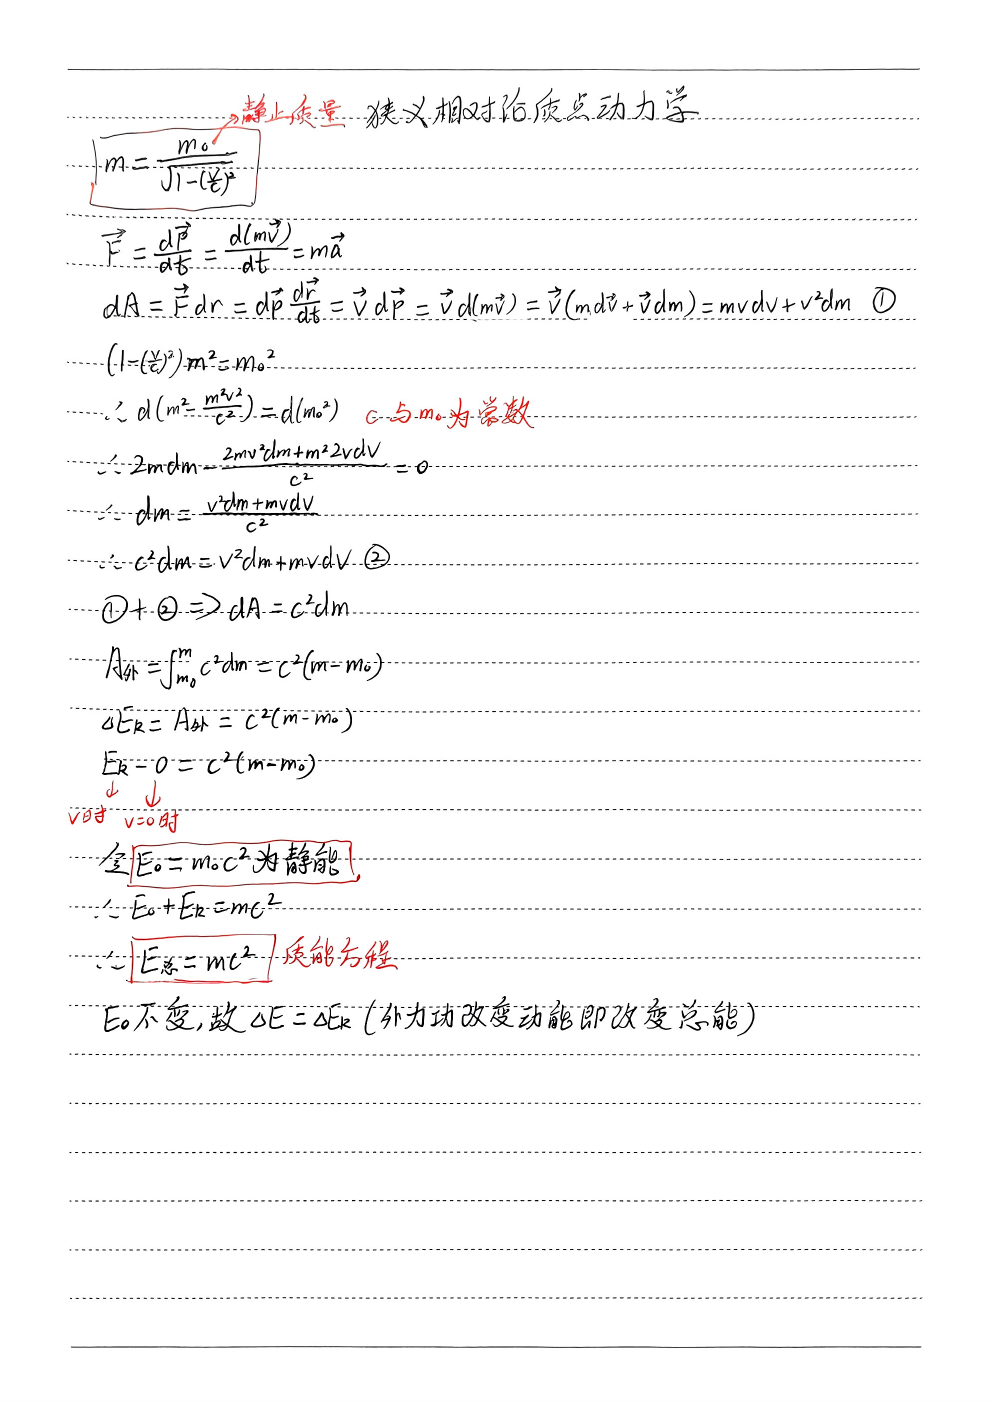 静止质量 狭义相对论质点动力学
m = m₀ / √(1-(v/c)²)
F⃗ = dP⃗/dt = d(mv⃗)/dt = ma⃗
dA = F⃗dr = dp⃗ dr⃗/dt = v⃗dp⃗ = v⃗d(mv⃗) = v⃗(mdv⃗+v⃗dm) = mvdv+v²dm ①
(1-(v/c)²)m²=m₀²
∴ d(m²-m²v²/c²)=d(m₀²) c与m₀为常数
∴ 2mdm-(2mv²dm+m²2vdv)/c²=0
∴ dm=(v²dm+mvdv)/c²
∴ c²dm=v²dm+mvdv ②
①+② ⇒ dA=c²dm
A外=∫ₘ₀ᵐ c²dm=c²(m-m₀)
ΔEk=A外=c²(m-m₀)
Ek-0=c²(m-m₀)
↓ ↓
v时 v=0时
令 E₀=m₀c²为静能
∴ E₀+Ek=mc²
∴ E总=mc² 质能方程
E₀不变,故ΔE=ΔEk(外力功改变动能即改变总能)